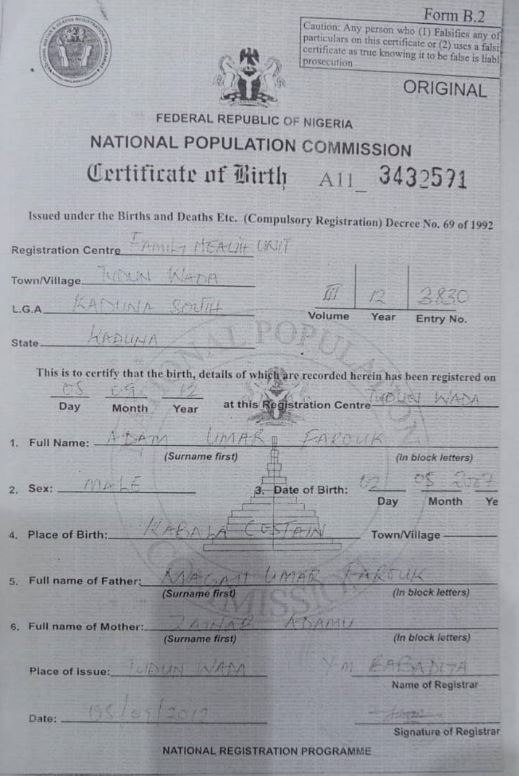 Form B.2
Caution: Any person who (1) Falsifies any of
particulars on this certificate or (2) uses a fals
certificate as true knowing it to be false is liabl
prosecution
ORIGINAL
FEDERAL REPUBLIC OF NIGERIA
NATIONAL POPULATION COMMISSION
Certificate of Birth A11_ 3432571
Issued under the Births and Deaths Etc. (Compulsory Registration) Decree No. 69 of 1992
Registration Centre FAMILY HEALTH UNIT
Town/Village TUDUN WADA
L.G.A KADUNA SOUTH
III 12 3830
Volume Year Entry No.
State KADUNA
This is to certify that the birth, details of which are recorded herein has been registered on
05 09 12 at this Registration Centre TUDUN WADA
Day Month Year
1. Full Name: ADAM UMAR FAROUK
(Surname first) (In block letters)
2. Sex: MALE 3. Date of Birth: 02 05 2007
Day Month Ye
4. Place of Birth: KABALA COSTAIN Town/Village
5. Full name of Father: UMAR FAROUK
(Surname first) (In block letters)
6. Full name of Mother: ZAINAB ADAMU
(Surname first) (In block letters)
Place of Issue: TUDUN WADA Y.M BABADIYA
Name of Registrar
Date: 05/09/2012
Signature of Registrar
NATIONAL REGISTRATION PROGRAMME